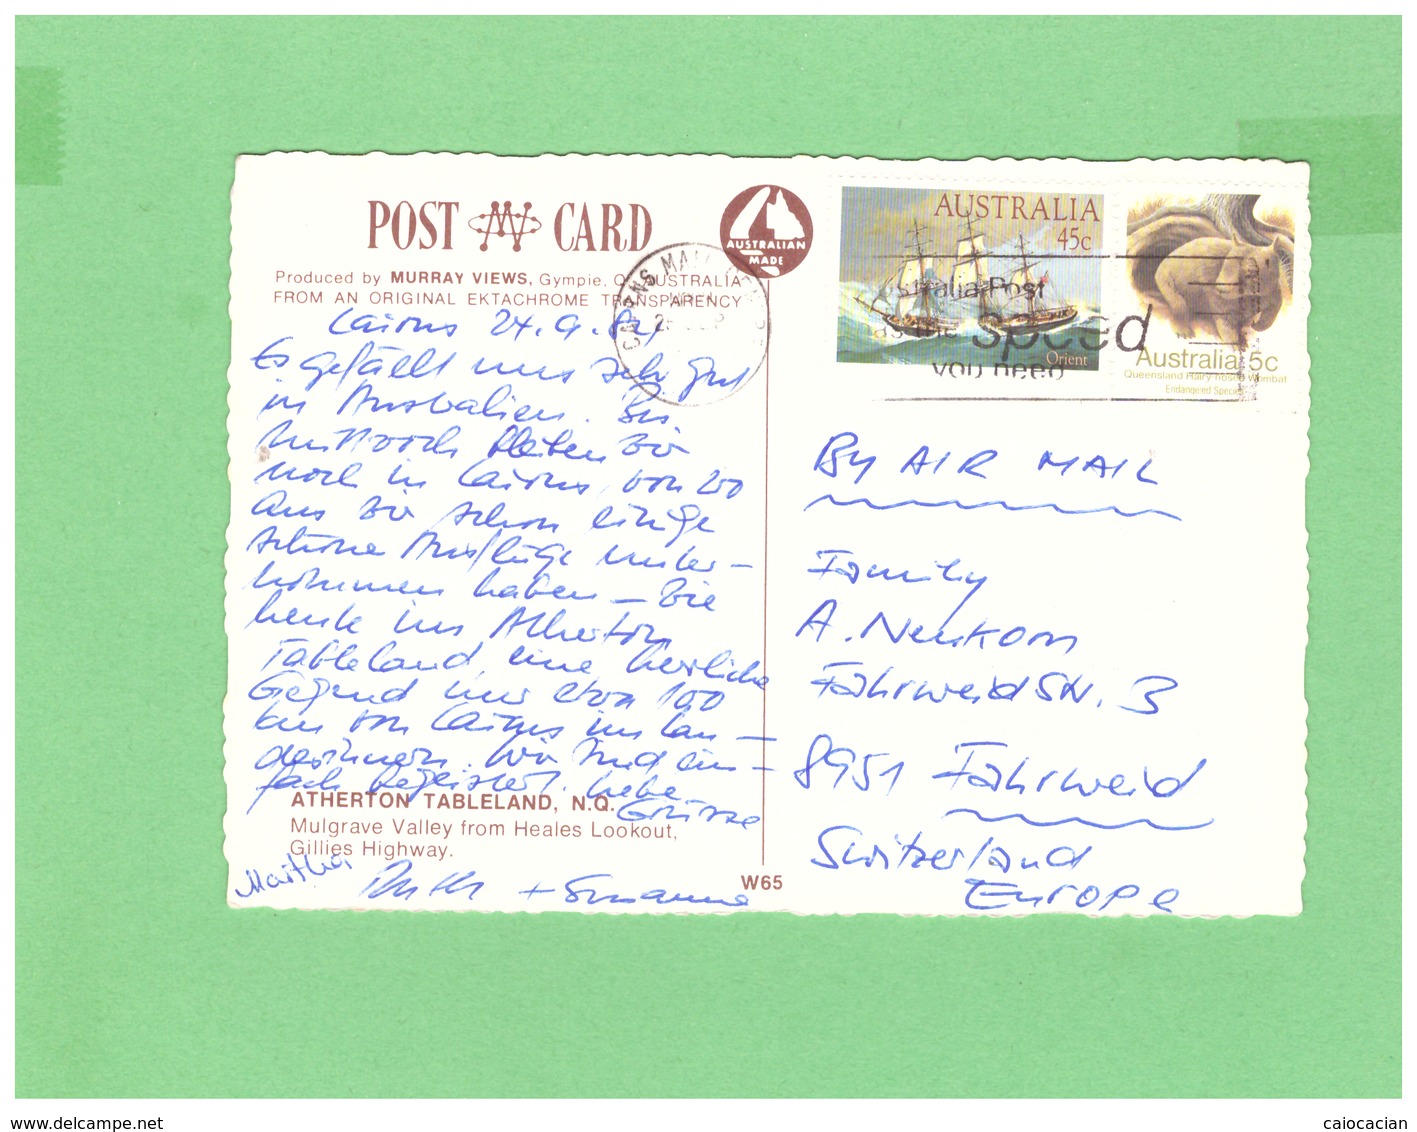 POST CARD
AUSTRALIAN
MADE
Produced by MURRAY VIEWS, Gympie, Q. AUSTRALIA
FROM AN ORIGINAL EKTACHROME TRANSPARENCY
Cairns 24.9.84
Es gefällt uns sehr gut
in Australien. Bis
Mittwoch bleiben wir
noch in Cairns, von wo
aus wir schon einige
schöne Ausflüge unter-
nommen haben – wie
heute ins Atherton
Tableland, eine herrliche
Gegend nur etwa 100
km von Cairns im Lan-
desinnern. Wir sind ein-
fach begeistert. Liebe
Grüsse
ATHERTON TABLELAND, N.Q.
Mulgrave Valley from Heales Lookout,
Gillies Highway.
Martha
Ruth + Susanne
W65
CAIRNS MAIL
AUSTRALIA
45c
Orient
Australia 5c
Queensland Hairy-nosed Wombat
Endangered Species
stralia Post
as the speed
you need
BY AIR MAIL
Family
A. Neukom
Fahrweidstr. 3
8951 Fahrweid
Switzerland
Europe
www.delcampe.net
calocacian